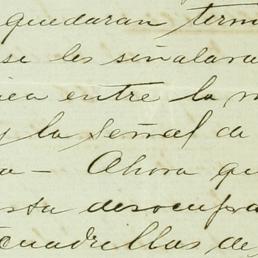 quedaran term
se les señalara
nea entre la m
y la señal de
a — Ahora qu
sta desocupa
cuadrillas de